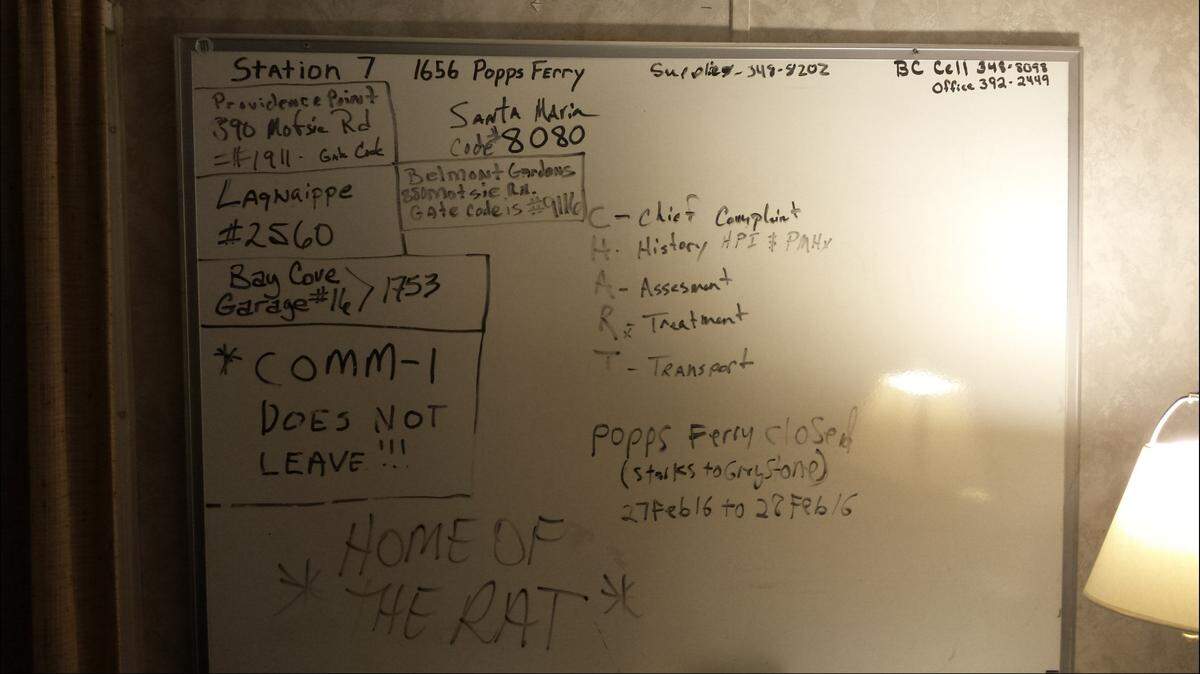 Station 7
1656 Popps Ferry
Supplies-348-8202
BC Cell 348-8098
Office 392-2449
Providence Point
390 Motsie Rd
=#1911. Gate Code
Santa Maria
Code# 8080
Lagnaippe
#2560
Belmont Gardens
850 Motsie Rd.
Gate Code is #9116
Bay Cove
Garage #16 > 1753
* COMM-1
DOES NOT
LEAVE!!!
C - Chief Complaint
H. History HPI & PMHx
A - Assesment
Rx - Treatment
T - Transport
Popps Ferry closed
(Starks to GreyStone)
27Feb16 to 28Feb16
HOME OF
* THE RAT *